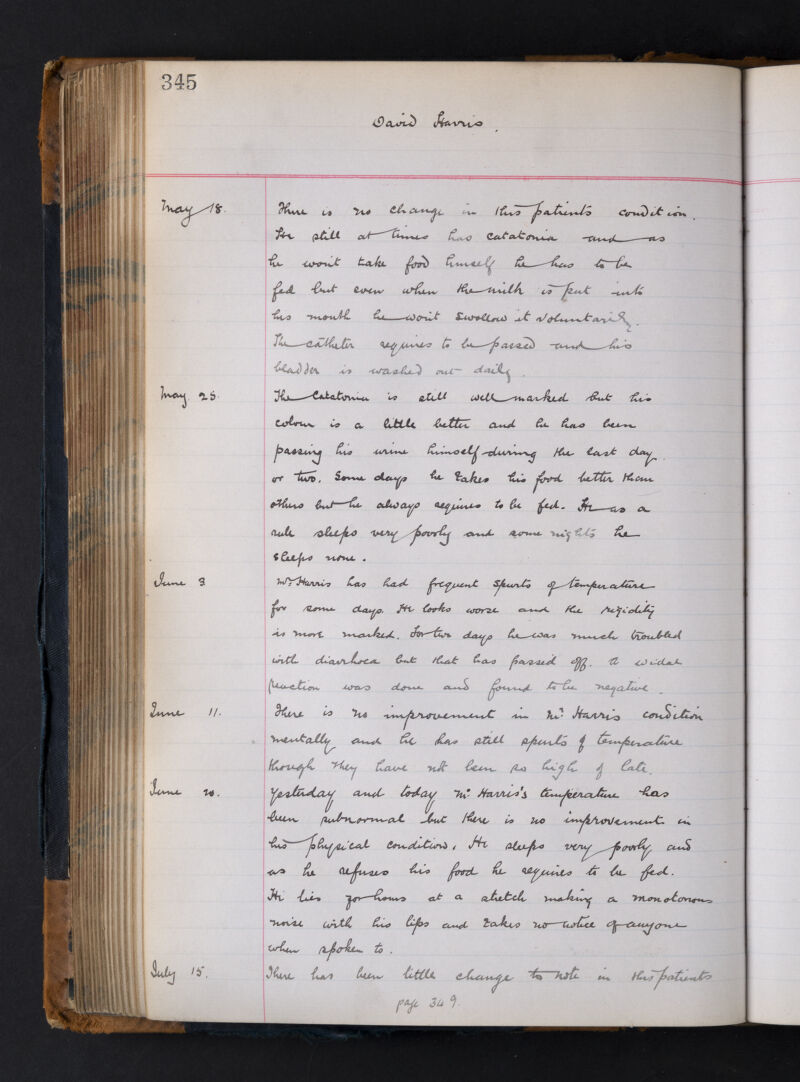 345
David Harris.
May 18. There is no change in this patients condition.
He still at times has catatonia and as
he wont take food himself he has to be
fed but even when the milk is put into
his mouth he wont swallow it voluntarily.
The catheter requires to be passed and his
bladder is washed out daily.
May 28. The Catatonia is still well marked but his
colour is a little better and he has been
passing his urine himself during the last day
or two. Some days he takes his food better than
others but he always requires to be fed. He as a
rule sleeps very poorly and some nights he
sleeps none.
June 3 Mr. Harris has had frequent spurts of temperature
for some days. He looks worse and the rigidity
is more marked. For two days he was much troubled
with diarrhoea but that has passed off. A widal
reaction was done and found to be negative.
June 11. There is no improvement in Mr. Harris condition
mentally and he has still spurts of temperature
though they have not been so high of late.
June 20. Yesterday and today Mr Harris's temperature has
been subnormal but there is no improvement in
his physical condition. He sleeps very poorly and
as he refuses his food he requires to be fed.
He lies for hours at a stretch making a monotonous
noise with his lips and takes no notice of anyone
when spoken to.
July 15. There has been little change to note in this patients
page 349.